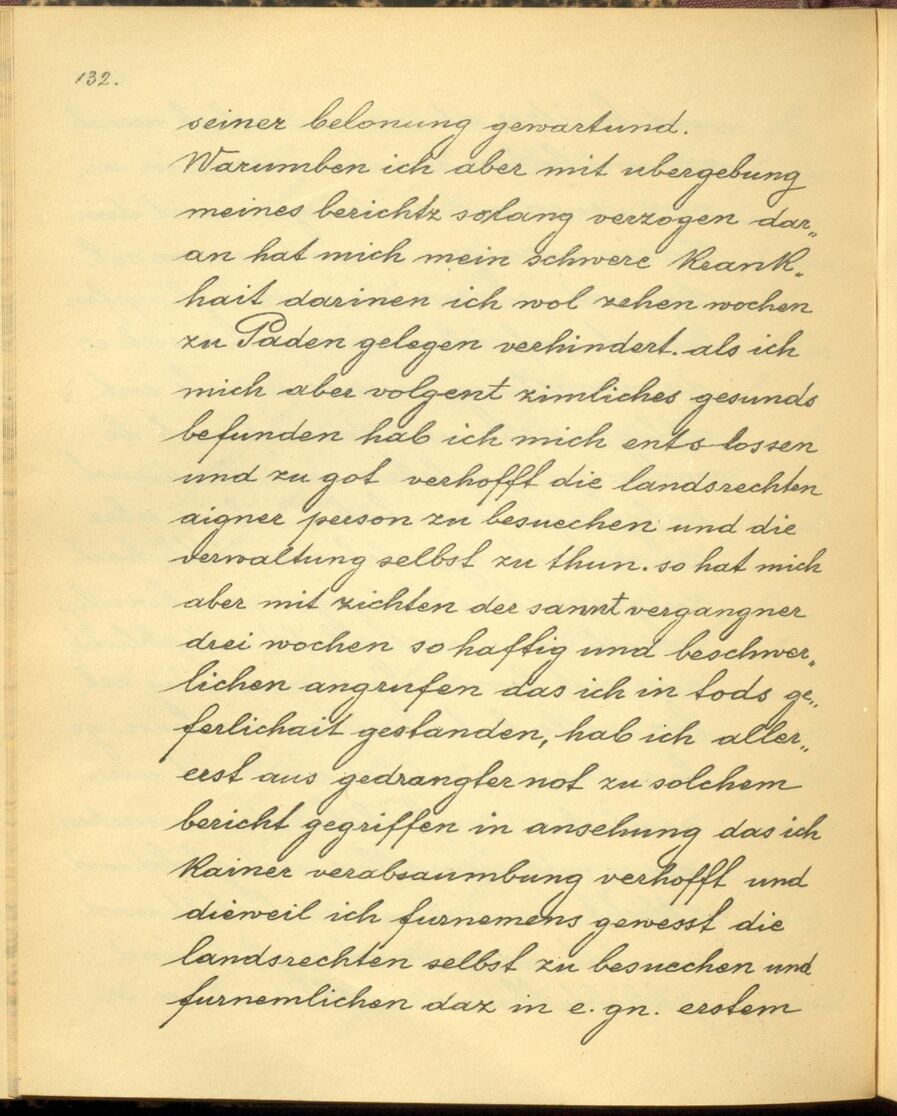 132.
seiner belonung gewartund.
Warumben ich aber mit ubergebung
meines berichtz solang verzogen dar„
an hat mich mein schwere Krank„
hait darinen ich wol zehen wochen
zu Paden gelegen verhindert. als ich
mich aber volgent zimliches gesunds
befunden hab ich mich ents lossen
und zu got verhofft die landsrechten
aigner person zu besuechen und die
verwaltung selbst zu thun. so hat mich
aber mit zichten der sannt vergangner
drei wochen so haftig und beschwer„
lichen angrufen das ich in tods ge„
ferlichait gestanden, hab ich aller„
erst aus gedrangter not zu solchem
bericht gegriffen in ansehung das ich
Kainer verabsaumbung verhofft und
dieweil ich furnemens gewesst die
landsrechten selbst zu besuechen und
furnemlichen daz in e. gn. erstem